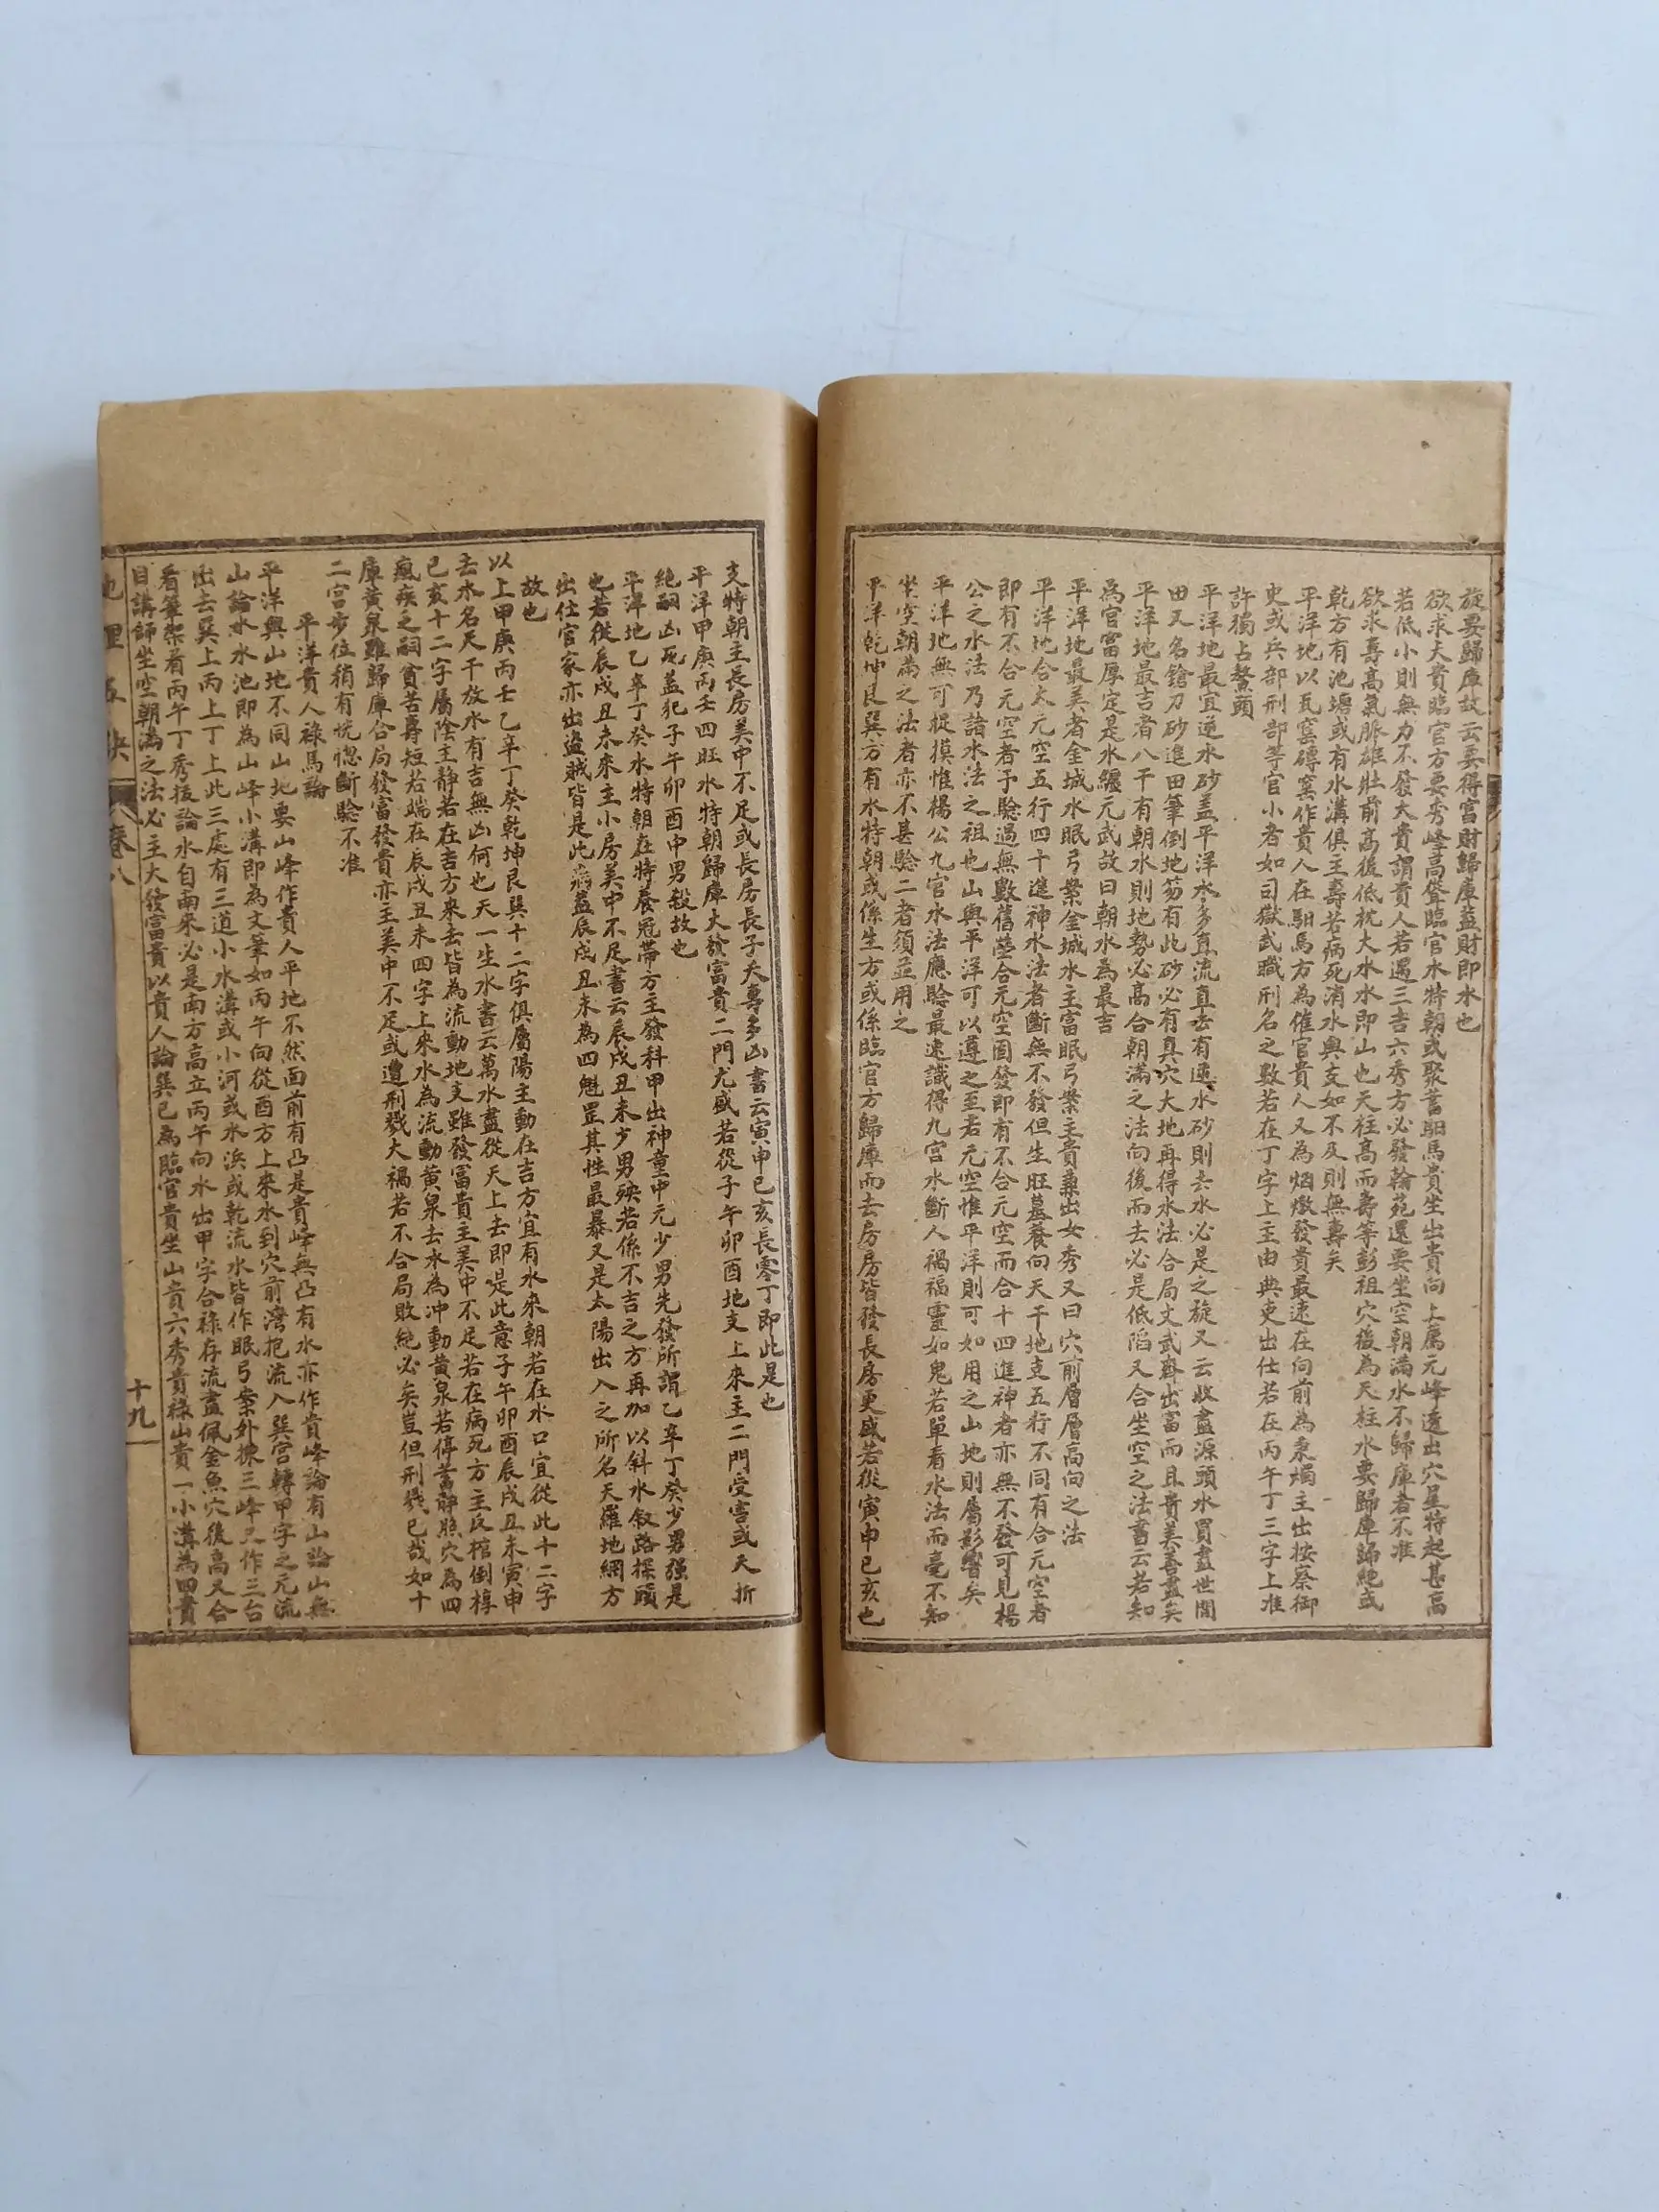 旋要歸庫故云要得富財歸庫益財即水也
欲求大貴臨官方要秀峰高聳臨官水特朝或聚蓄馹馬貴坐出貴向上属元峰透出穴星特起甚高
若低小則無力不發大貴謂貴人若遇三吉六秀方必發翰苑還要坐空朝滿水不歸庫者不准
欲求壽高氣脈雄壯前高後低枕大水水即山也天柱高而壽等彭祖穴後為天柱水要歸庫歸絕或
乾方有池塘或有水溝俱主壽若病死消水與支如不及則無壽矣
平洋地以瓦窰磚窯作貴人在馹馬方為催官貴人又為烟燉發貴最速在向前為秉燭主出按察御
史或兵部刑部等官小者如司獄武職刑名之數若在丁字上主由典吏出仕若在丙午丁三字上准
許獨占鰲頭
平洋地最宜逆水砂盖平洋水多直流直去有逆水砂則去水必是之旋又云收盡源頭水買盡世間
田又名鎗刀砂進田筆倒地笏有此砂必有真穴大地再得水法合局文武齊出富而且貴美善盡矣
平洋地最吉者八干有朝水則地勢必高合朝滿之法向後而去必是低陷又合坐空之法書云若知
為官富厚定是水纏元武故曰朝水為最吉
平洋地最美者金城水眠弓案金城水主富眠弓案主貴兼出女秀又曰穴前層層高向之法
平洋地合太元空五行四十進神水法者斷無不發但生旺墓養向天干地支五行不同有合元空者
即有不合元空者予驗過無數舊塋合元空固發即有不合元空而合十四進神者亦無不發可見楊
公之水法乃諸水法之祖也山與平洋可以遵之至若元空惟平洋則可如用之山地則屬影響矣
平洋地無可捉摸惟楊公九宮水法應驗最速識得九宮水斷人禍福靈如鬼若單看水法而毫不知
坐空朝滿之法者亦不甚驗二者須並用之
平洋乾坤艮巽方有水特朝或係生方或係臨官方歸庫而去房房皆發長房更盛若從寅申巳亥也
支特朝主長房美中不足或長房長子夭壽多凶書云寅申巳亥長零丁即此是也
平洋甲庚丙壬四旺水特朝歸庫大發富貴二門尤盛若從子午卯酉地支上來主二門受害或夭折
絕嗣凶死盖犯子午卯酉中男殺故也
平洋地乙辛丁癸水特朝在特養冠帶方主發科甲出神童中元少男先發所謂乙辛丁癸少男强是
也若從辰戌丑未來主小房美中不足書云辰戌丑未少男殃若係不吉之方再加以斜水叙路探頭
出仕官家亦出盜賊皆是此病蓋辰戌丑未為四魁罡其性最暴又是太陽出入之所名天羅地網方
故也
以上甲庚丙壬乙辛丁癸乾坤艮巽十二字俱屬陽主動在吉方宜有水來朝若在水口宜從此十二字
去水名天干放水有吉無凶何也天一生水書云萬水盡從天上去即是此意子午卯酉辰戌丑未寅申
巳亥十二字屬陰主靜若在吉方來去皆為流動地支雖發富貴主美中不足若在病死方主反棺倒槨
瘋疾之嗣貧苦壽短若端在辰戌丑未四字上來水為流動黃泉去水為冲動黃泉若停蓄靜照穴為四
庫黃泉雖歸庫合局發富發貴亦主美中不足或遭刑戮大禍若不合局敗絕必矣豈但刑戮已哉如十
二宮步位稍有恍惚斷驗不准
平洋貴人祿馬論
平洋與山地不同山地要山峰作貴人平地不然面前有凸是貴峰無凸有水亦作貴峰論有山論山無
山論水水池即為山峰小溝即為文筆如丙午向從酉方上來水到穴前灣抱流入巽宮轉甲字之元流
出去巽上丙上丁上此三處有三道小水溝或小河或水浜或乾流水皆作眠弓案外揀三峰又作三台
看筆架看丙午丁秀拔論水自南來必是南方高立丙午向水出甲字合祿存流盡佩金魚穴後高又合
目講師坐空朝滿之法必主大發富貴以貴人論巽巳為臨官貴坐山貴六秀貴祿山貴一小溝為四貴
地理五訣
卷八
十九